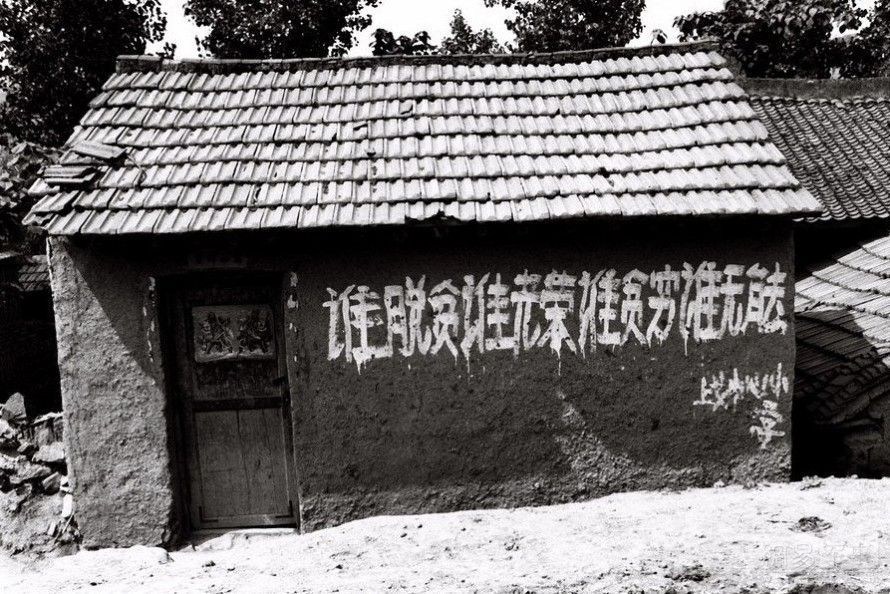 谁脱贫谁光荣谁贫穷谁无能
上戈中心小
学